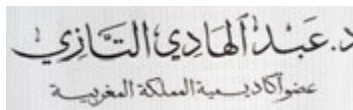 د. عبد الهادي التازي
عضو أكاديمية المملكة المغربية